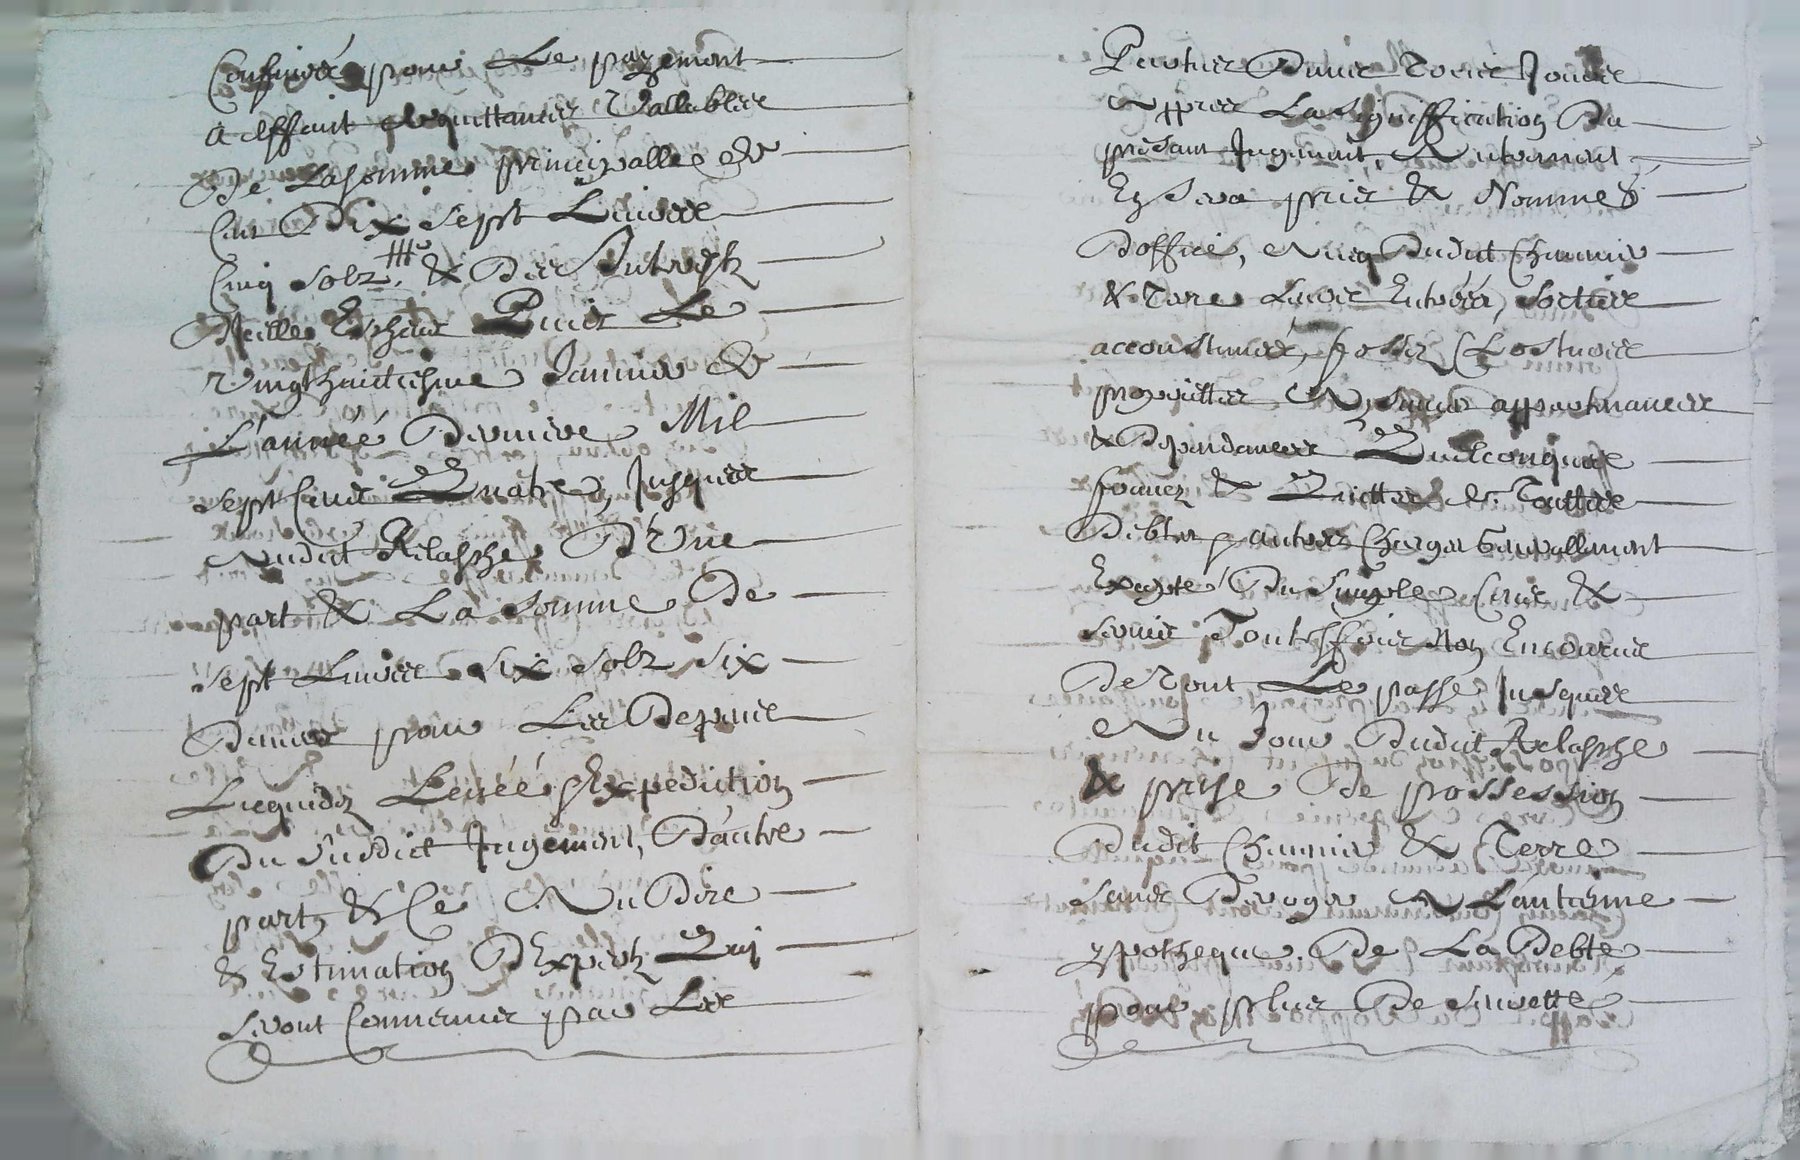 Confinées pour Le payement
a Effaict Acquittances Vallables
De La somme principalle de
Cens Dix sept Livres
Cinq solz tt & Des Interestz
D'icelle Escheus Puis Le
vingthuictiesme Janvier de
L'année Derniere Mil
sept Cens Quatre, Jusques
Audict Relasche D'Une
part & La somme De
sept Livres six solz six
Deniers pour Les Depens
Liequidez Levée & Expedition
Du susdict Jugement, D'autre
part, & Ce Au Dire
& Estimation D'Expertz Qui
seront Convenus par Les
Parties Dans Trois Jours
Appres La Signiffication Du
presant Jugement, Autrement
En sera pris & Nommés
D'office, Avecq Dudict Chaumis
& Terre Leurs Entrées, sorties
accoustumées, fossez, Clostures
proprietes Aysines appartenances
& Dependances Quelconques
francz & Quittes de Touttes
Debtes & autres Charges Generallement
Excepté Du simple Cens &
servis Touteffois Non Encourus
De Tout Le passé Jusques
Au Jour Dudict Relasche
& prise De possession
Dudit Chaumis & Terre
sans Deroger A L'antienne
ypotheque De La Debte
pour plus De seurette